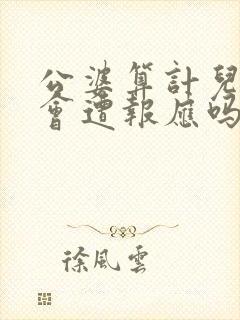 公婆算計兒
會遭報應嗎
徐風雲